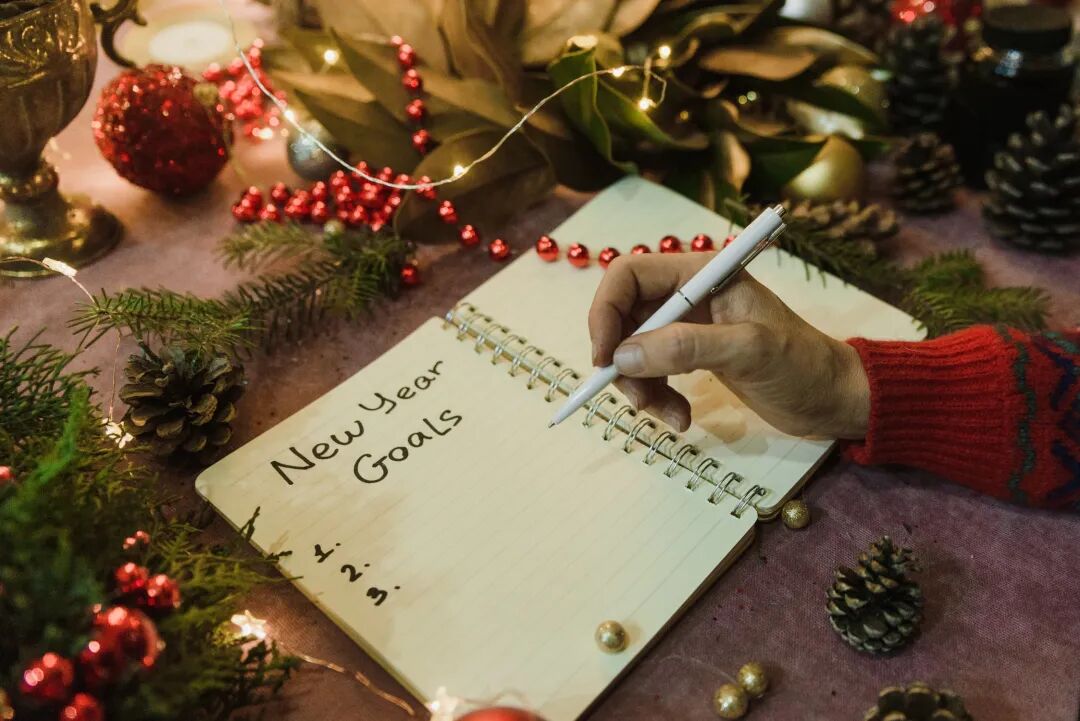 New Year
Goals
1.
2.
3.